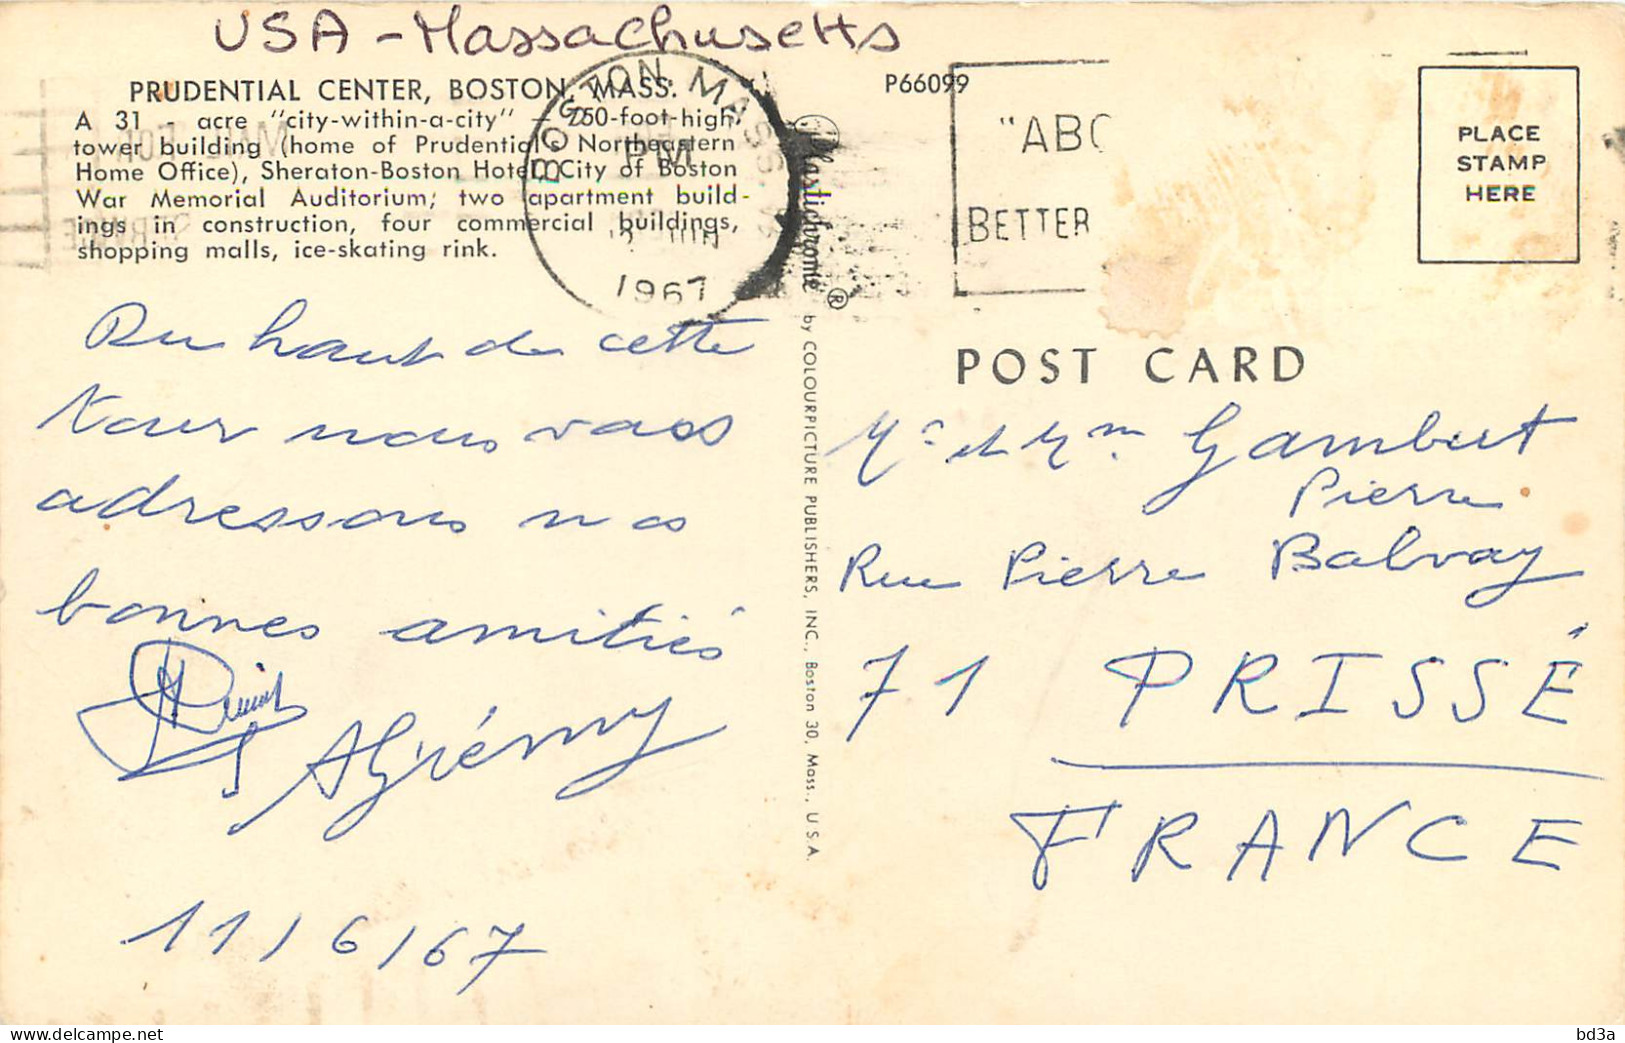 USA - Massachusetts
PRUDENTIAL CENTER, BOSTON, MASS.
A 31 - acre "city-within-a-city" — 750-foot-high,
tower building (home of Prudential's Northeastern
Home Office), Sheraton-Boston Hotel, City of Boston
War Memorial Auditorium; two apartment build-
ings in construction, four commercial buildings,
shopping malls, ice-skating rink.
BOSTON MASS.
PM
1967
P66099
"ABC
BETTER
PLACE
STAMP
HERE
Plastichrome ® by COLOURPICTURE PUBLISHERS, INC., Boston 30, Mass., U.S.A.
POST CARD
Du haut de cette
tour nous vous
adressons nos
bonnes amitiés
11/6/67
Mr et Mm Gambert
Pierre
Rue Pierre Balvay
71 PRISSÉ
FRANCE
bd3a